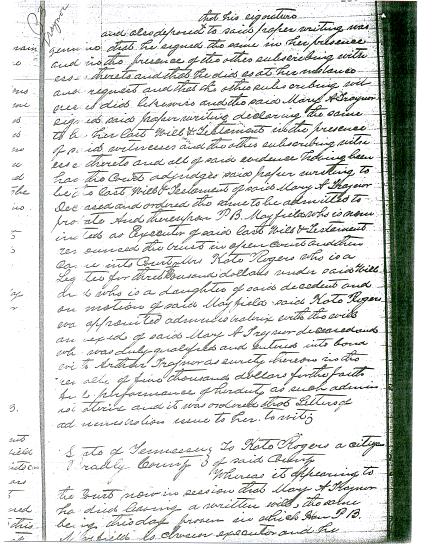 Traynor
that his signature
and also deposed to said paper writing was
that he signed the same in her presence
and in the presence of the other subscribing witn
esse thereto and that he did so at her instance
and request and that the other subscribing wit
did likewise and the said Mary A Traynor
signed said paper writing declaring the same
to b her last Will & Testament in the presence
of s id witnesses and the other subscribing witn
esse thereto and all of said evidence having been
had the Court adjudges said paper writing to
be last Will & Testament of said Mary A Traynor
Deceased and ordered the same to be admitted to
pro ate And thereupon P. B. Mayfield who is nom
in ted as Executor of said last Will & Testament
ren ounced the trust in open Court and then
Ca e into Court Mrs Kate Rogers who is a
Leg tee for three thousand dollars under said Will
who is a daughter of said decedent and
on motion of said Mayfield said Kate Rogers
was appointed administratrix with the will
an exed of said Mary A Traynor deceased and
wh was duly qualified and entered into bond
wit Arthur Traynor as surety thereon in the
pen alty of five thousand dollars for the faith
performance of her duty as such admin
ist atrix and it was ordered that Letters of
ad ministration issue to her. to wit;
S ate of Tennessee, To Kate Rogers a citizen
Bradley County of said County
Whereas it appearing to
the Court now in session that May A Traynor
ha died leaving a written will the same
being this day proven in which P. B.
Mayfield is chosen executor and he